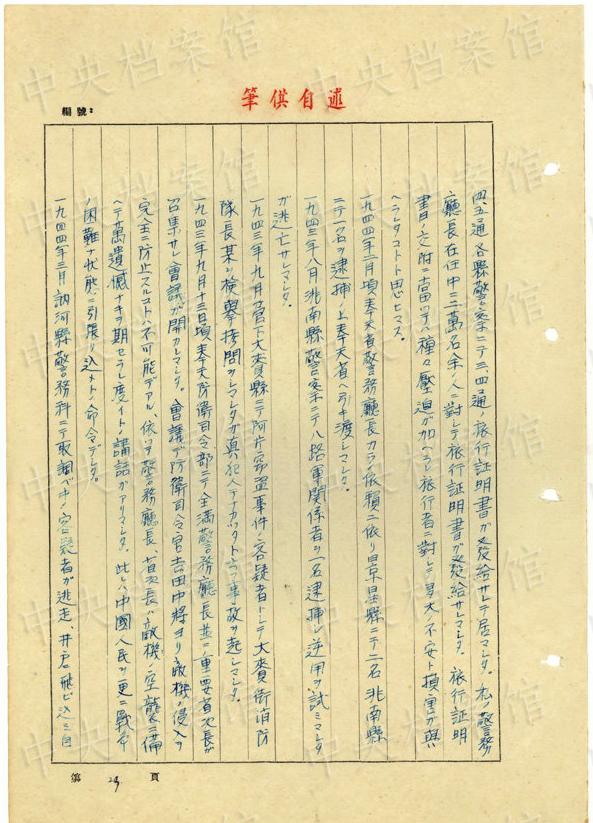 筆供自述
編號:
四、五通各縣警察ニテ三、四通ノ旅行証明書ガ発給サレテ居マシタ。私ノ警務
廳長在任中ニ二萬名余ノ人ニ対シテ旅行証明書ガ発給サレマシタ。旅行証明
書ノ交附ニ當ツテハ種々圧迫ガ加ヘラレ旅行者ニ對シテ多大ノ不安ト損害ガ與
ヘラレタコトト思ヒマス。
一九四四年二月頃奉天省警務廳長カラノ依頼ニ依リ景星縣ニテ二名洮南縣
ニテ一名ヲ逮捕ノ上奉天省ヘ引キ渡シマシタ。
一九四三年八月洮南縣警察ニテ八路軍関係者ヲ一名逮捕シ逆用ヲ試ミマシタ
ガ逃亡サレマシタ。
一九四三年九月管下大賚縣ニテ阿片窃盗事件ノ容疑者トシテ大賚街消防
隊長某ヲ検擧拷問ヲシマシタガ真犯人デナカッタト言フ事故ヲ起シマシタ。
一九四三年九月十三日頃奉天防衛司令部ニテ全満警務廳長並ニ重要省次長ガ
召集サレ會議ガ開カレマシタ。會議デ防衛司令官吉田中將ヨリ敵機ノ侵入ヲ
完全ニ防止スルコトハ不可能デアル、依ツテ警務廳長、省次長ハ敵機ノ空襲ニ備
ヘテ萬遺憾ナキヲ期セラレ度イトノ講話ガアリマシタ。此レハ中國人民ヲ更ニ戰爭
ノ困難ナ状態ニ引張リ込メトノ命令デシタ。
一九四四年三月訥河縣警務科ニテ取調ベ中ノ容疑者ガ逃走、井戸ニ飛ビ込ミ自
第 29 頁
中央档案馆